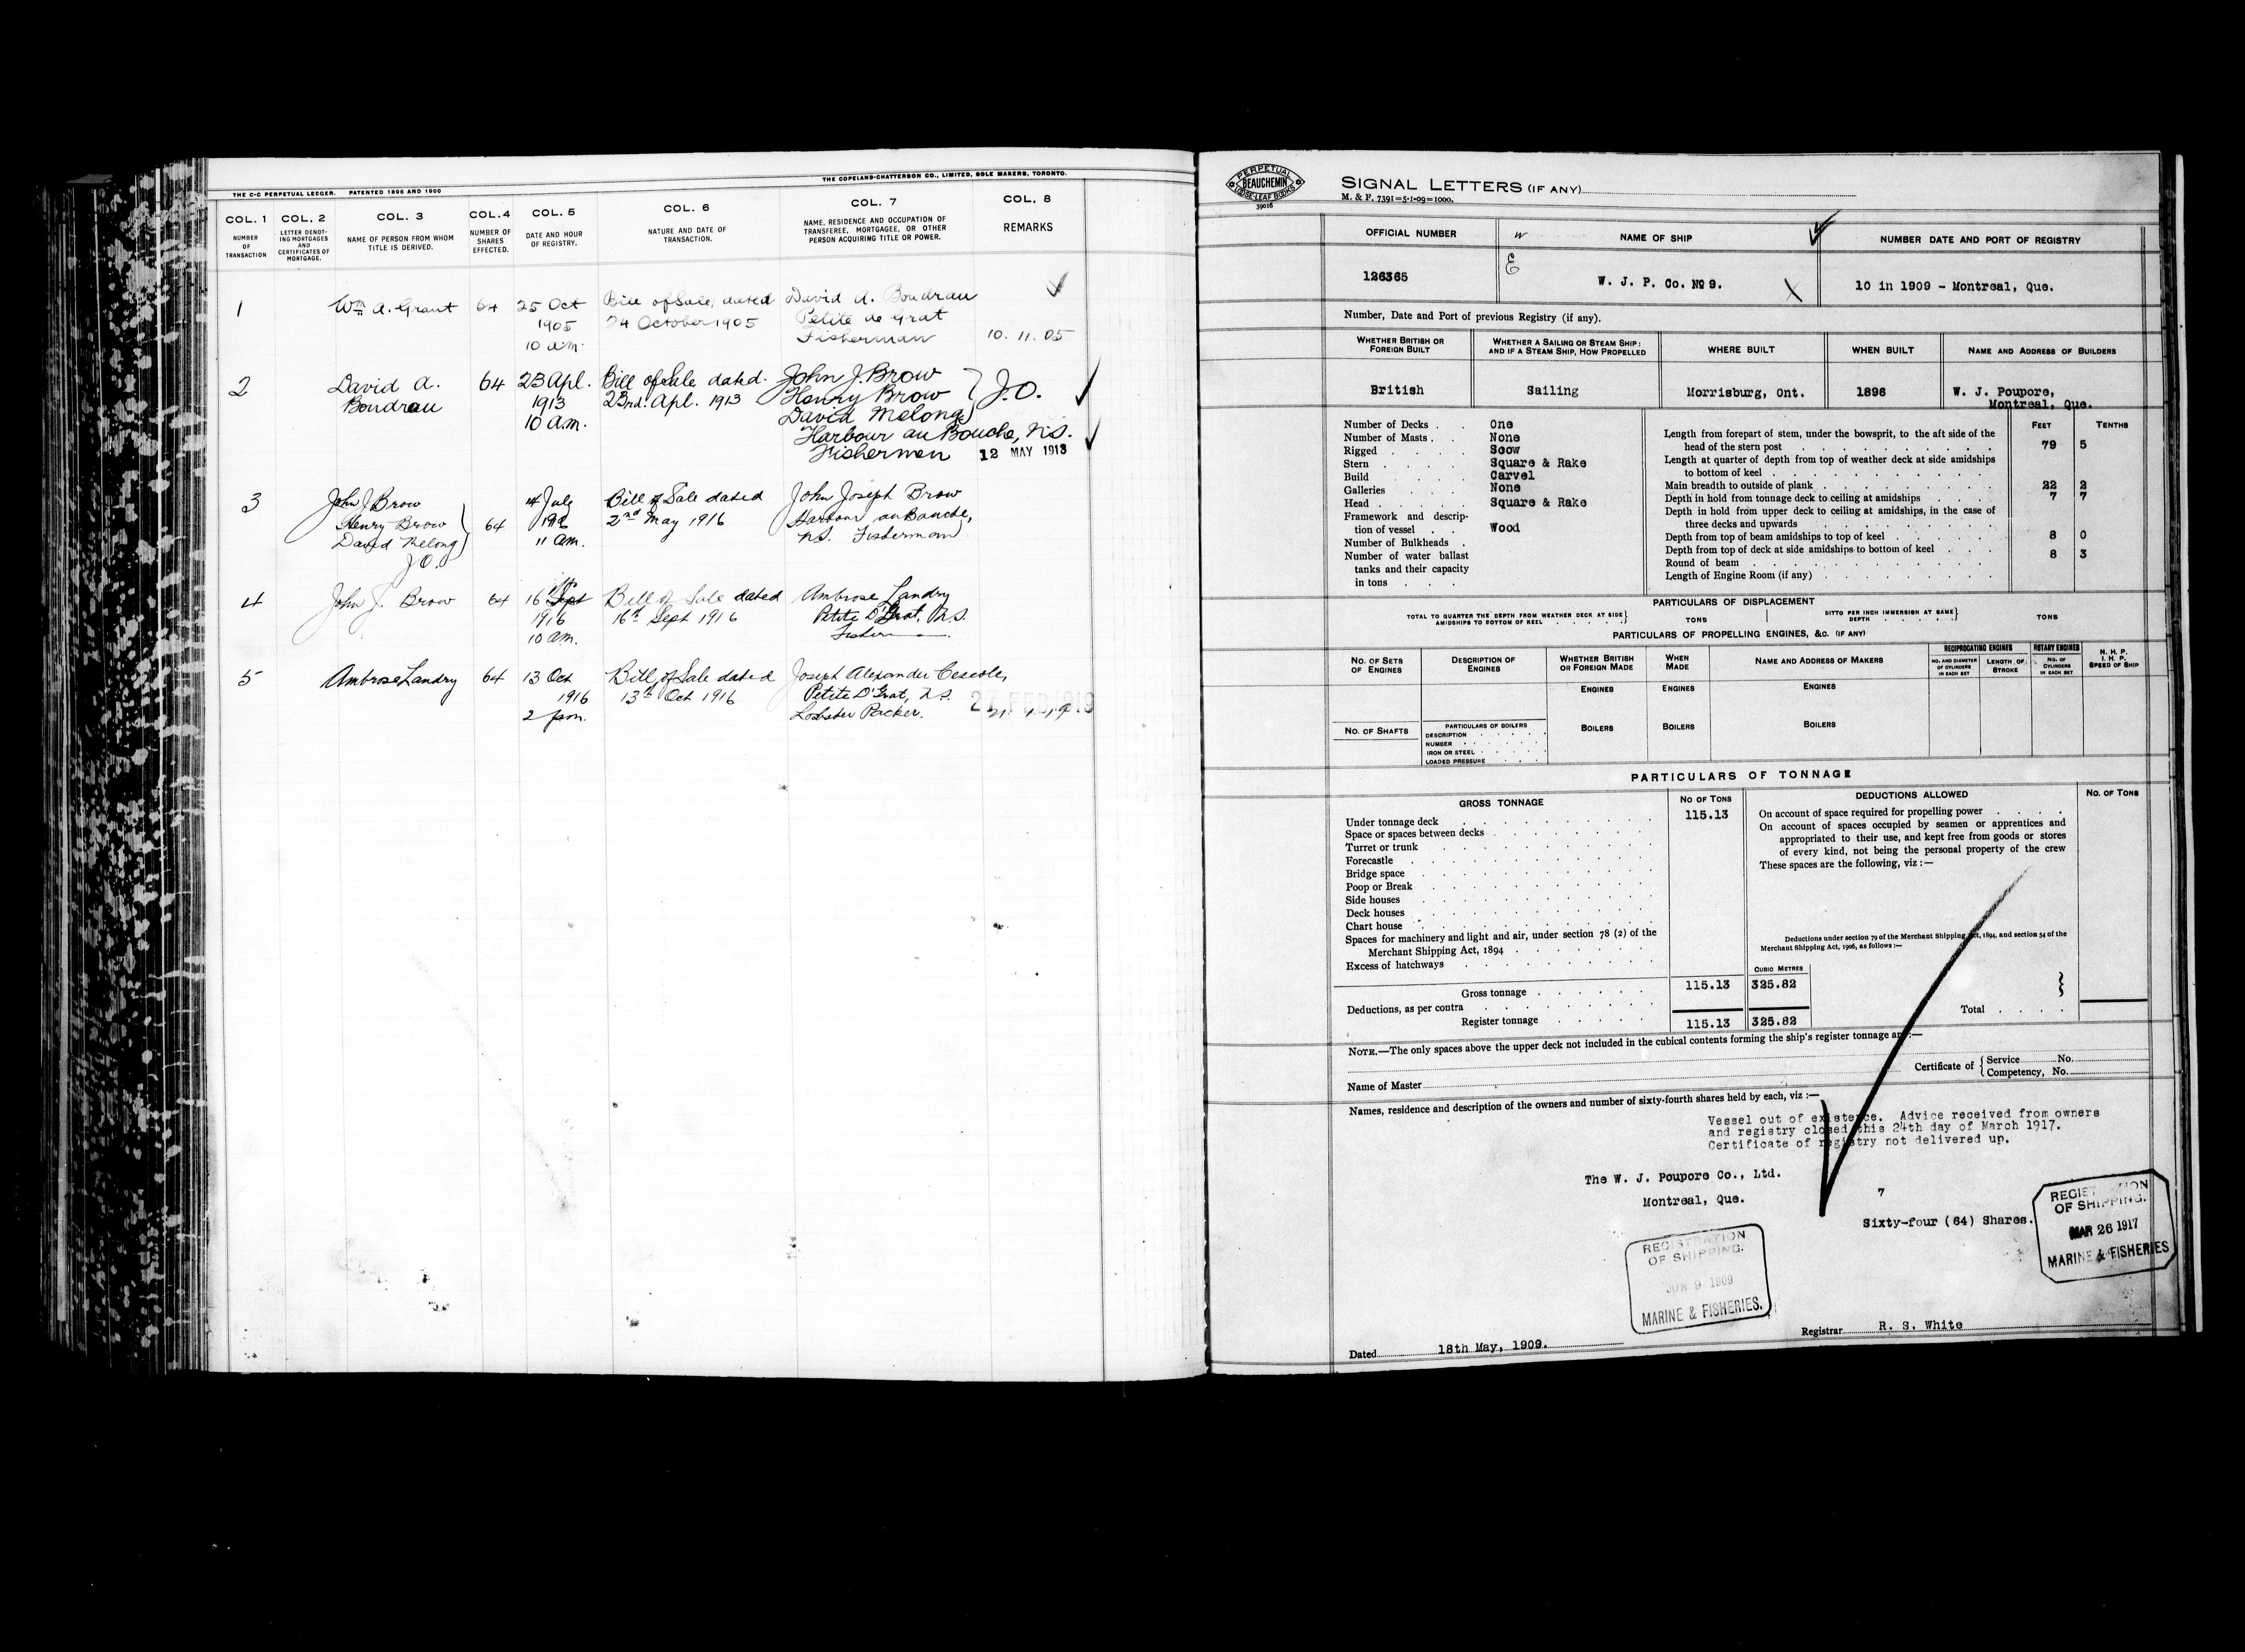 THE C-C PERPETUAL LEDGER. PATENTED 1896 AND 1900
THE COPELAND-CHATTERSON CO., LIMITED, SOLE MAKERS, TORONTO.
COL. 1 COL. 2 COL. 3 COL. 4 COL. 5 COL. 6 COL. 7 COL. 8
NUMBER OF TRANSACTION
LETTER DENOTING MORTGAGES AND CERTIFICATES OF MORTGAGE.
NAME OF PERSON FROM WHOM TITLE IS DERIVED.
NUMBER OF SHARES EFFECTED.
DATE AND HOUR OF REGISTRY.
NATURE AND DATE OF TRANSACTION.
NAME, RESIDENCE AND OCCUPATION OF TRANSFEREE, MORTGAGEE, OR OTHER PERSON ACQUIRING TITLE OR POWER.
REMARKS
1 Wm A. Grant 64 25 Oct Bill of Sale, dated David A. Boudrau
1905 24 October 1905 Petite de Grat
10 am. Fisherman 10.11.05
2 David A. 64 23 Apl. Bill of Sale dated John J. Brow
Boudrau 1913 23rd. Apl. 1913 Henry Brow J.O.
10 am. David Melong
Harbour au Bouche, N.S.
Fishermen 12 MAY 1913
3 John J Brow 4 July Bill of Sale dated John Joseph Brow
Henry Brow 64 2nd May 1916 Harbour au Bouche,
David Melong 11 am. N.S. Fisherman
J.O.
4 John J. Brow 64 16 Sept Bill of Sale dated Ambrose Landry
1916 16th Sept 1916 Petite D'Grat, N.S.
10 am.
5 Ambrose Landry 64 13 Oct Bill of Sale dated Joseph Alexander
1916 13th Oct 1916 Petite D'Grat, N.S. 27 FEB 1919
2 pm. Lobster Packer.
PERPETUAL
BEAUCHEMIN
LOOSE-LEAF BOOKS
39016
SIGNAL LETTERS (IF ANY)
M. & F. 7391=5-1-09=1000.
OFFICIAL NUMBER NAME OF SHIP NUMBER DATE AND PORT OF REGISTRY
126365 W. J. P. Co. No 9. 10 in 1909 - Montreal, Que.
Number, Date and Port of previous Registry (if any).
WHETHER BRITISH OR FOREIGN BUILT
WHETHER A SAILING OR STEAM SHIP: AND IF A STEAM SHIP, HOW PROPELLED
WHERE BUILT WHEN BUILT NAME AND ADDRESS OF BUILDERS
British Sailing Morrisburg, Ont. 1896 W. J. Poupore,
Montreal, Que.
FEET TENTHS
Number of Decks . . One
Number of Masts . . None
Rigged . . . . Scow
Stern . . . . Square & Rake
Build . . . . Carvel
Galleries . . . None
Head . . . . . Square & Rake
Framework and descrip-
tion of vessel . . Wood
Number of Bulkheads .
Number of water ballast
tanks and their capacity
in tons . . .
Length from forepart of stem, under the bowsprit, to the aft side of the
head of the stern post 79 5
Length at quarter of depth from top of weather deck at side amidships
to bottom of keel
Main breadth to outside of plank 22 2
Depth in hold from tonnage deck to ceiling at amidships 7 7
Depth in hold from upper deck to ceiling at amidships, in the case of
three decks and upwards
Depth from top of beam amidships to top of keel 8 0
Depth from top of deck at side amidships to bottom of keel 8 3
Round of beam
Length of Engine Room (if any)
PARTICULARS OF DISPLACEMENT
TOTAL TO QUARTER THE DEPTH FROM WEATHER DECK AT SIDE AMIDSHIPS TO BOTTOM OF KEEL TONS
DITTO PER INCH IMMERSION AT SAME DEPTH TONS
PARTICULARS OF PROPELLING ENGINES, &c. (IF ANY)
NO. OF SETS OF ENGINES
DESCRIPTION OF ENGINES
WHETHER BRITISH OR FOREIGN MADE
WHEN MADE
NAME AND ADDRESS OF MAKERS
RECIPROCATING ENGINES
NO. AND DIAMETER OF CYLINDERS IN EACH SET
LENGTH OF STROKE
ROTARY ENGINES
NO. OF CYLINDERS IN EACH SET
N. H. P.
I. H. P.
SPEED OF SHIP
ENGINES ENGINES ENGINES
NO. OF SHAFTS
PARTICULARS OF BOILERS
DESCRIPTION
NUMBER
IRON OR STEEL
LOADED PRESSURE
BOILERS BOILERS BOILERS
PARTICULARS OF TONNAGE
GROSS TONNAGE NO OF TONS DEDUCTIONS ALLOWED NO. OF TONS
Under tonnage deck 115.13
Space or spaces between decks
Turret or trunk
Forecastle
Bridge space
Poop or Break
Side houses
Deck houses
Chart house
Spaces for machinery and light and air, under section 78 (2) of the
Merchant Shipping Act, 1894
Excess of hatchways
On account of space required for propelling power
On account of spaces occupied by seamen or apprentices and
appropriated to their use, and kept free from goods or stores
of every kind, not being the personal property of the crew
These spaces are the following, viz :—
Deductions under section 79 of the Merchant Shipping Act, 1894, and section 54 of the
Merchant Shipping Act, 1906, as follows :—
CUBIC METRES
Gross tonnage 115.13 325.82
Deductions, as per contra Total
Register tonnage 115.13 325.82
NOTE.—The only spaces above the upper deck not included in the cubical contents forming the ship's register tonnage are :—
Name of Master
Certificate of Service No.
Competency, No.
Names, residence and description of the owners and number of sixty-fourth shares held by each, viz :—
Vessel out of existence. Advice received from owners
and registry closed this 24th day of March 1917.
Certificate of registry not delivered up.
The W. J. Poupore Co., Ltd.
Montreal, Que. 7
Sixty-four (64) Shares.
REGISTRATION
OF SHIPPING.
MAR 26 1917
MARINE & FISHERIES
REGISTRATION
OF SHIPPING.
JUN 9 1909
MARINE & FISHERIES.
Dated 18th May, 1909.
Registrar R. S. White